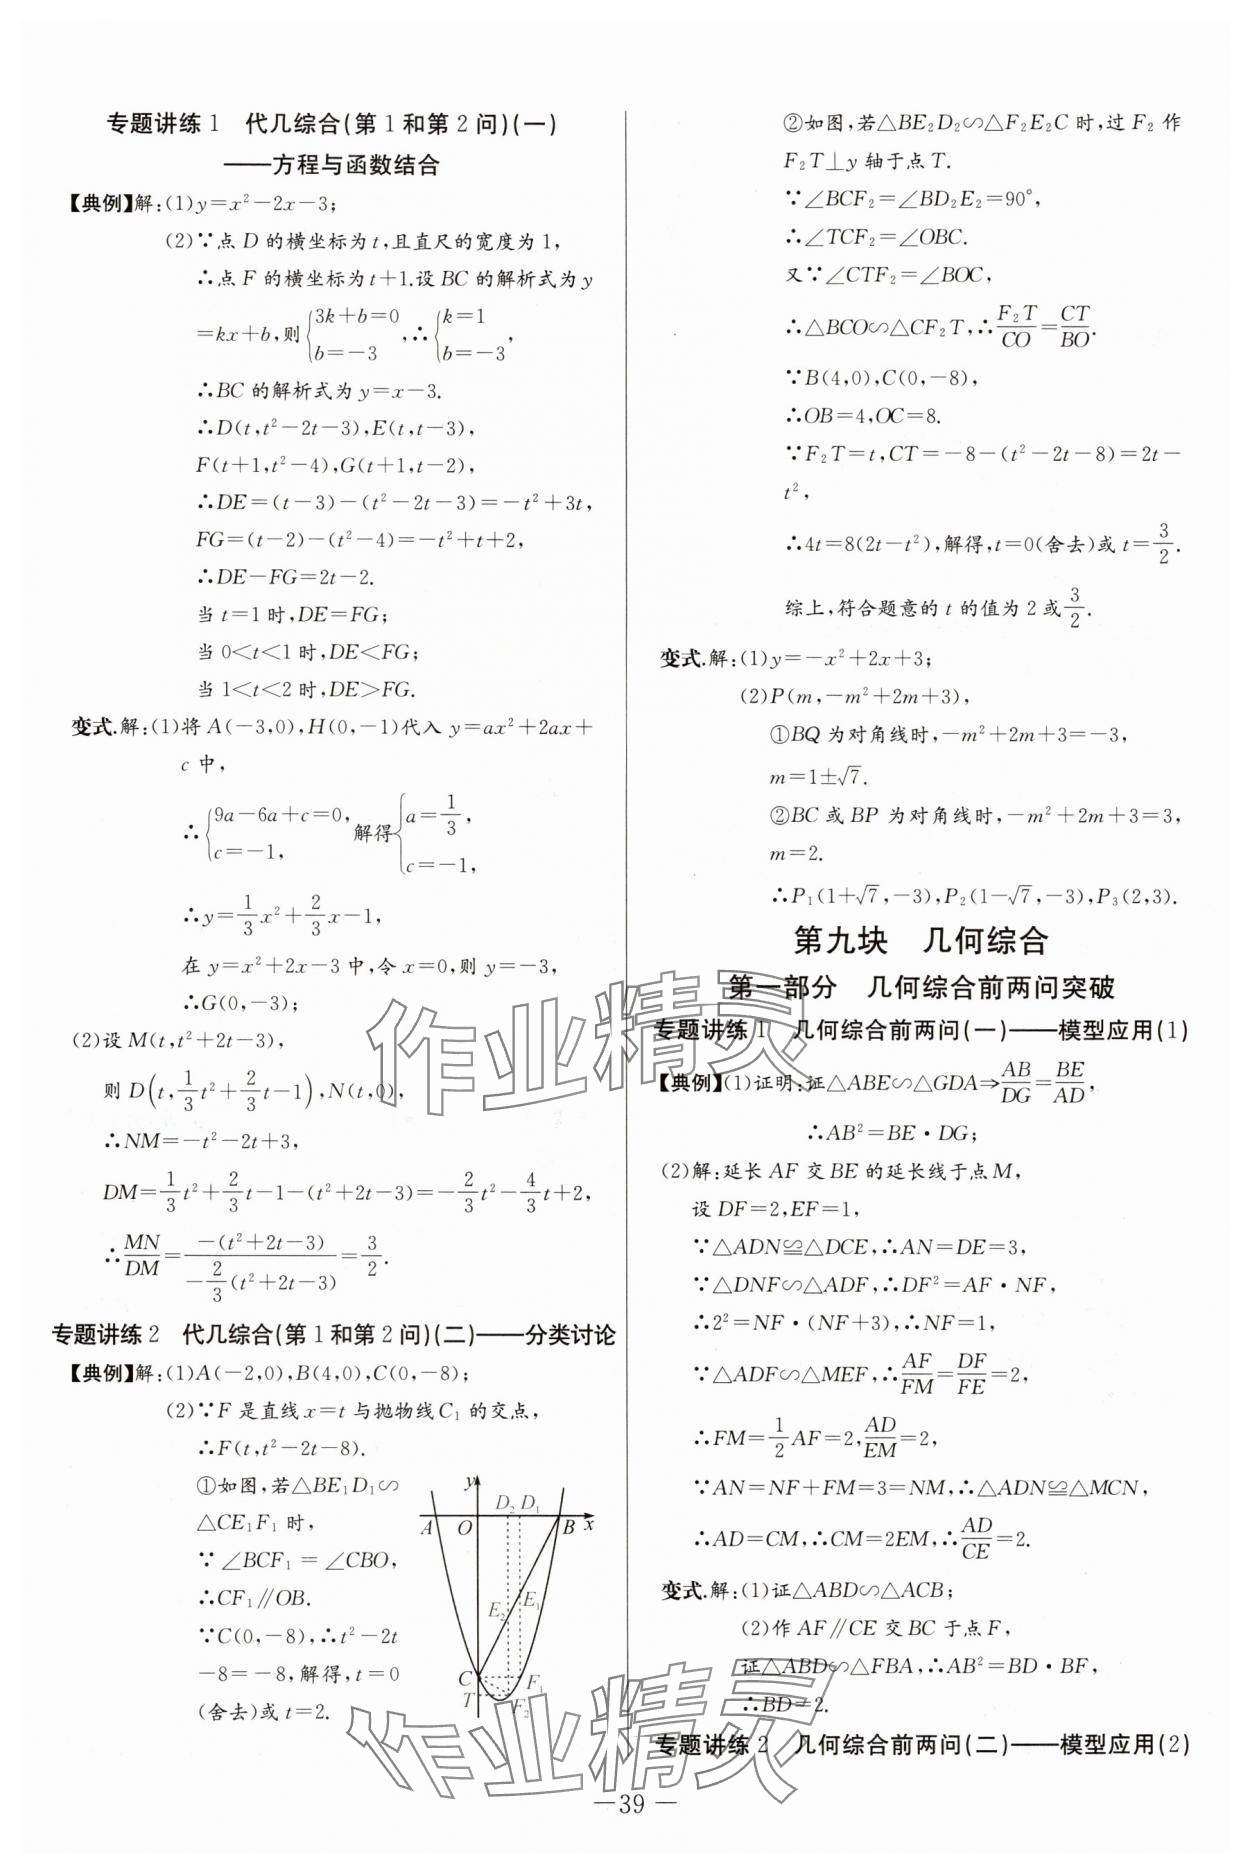 专题讲练1 代几综合(第1和第2问)(一)
——方程与函数结合
【典例】解:(1)y=x²-2x-3;
(2)∵点D的横坐标为t,且直尺的宽度为1,
∴点F的横坐标为t+1.设BC的解析式为y
=kx+b,则{3k+b=0 b=-3,∴{k=1 b=-3,
∴BC的解析式为y=x-3.
∴D(t,t²-2t-3),E(t,t-3),
F(t+1,t²-4),G(t+1,t-2),
∴DE=(t-3)-(t²-2t-3)=-t²+3t,
FG=(t-2)-(t²-4)=-t²+t+2,
∴DE-FG=2t-2.
当t=1时,DE=FG;
当0<t<1时,DE<FG;
当1<t<2时,DE>FG.
变式.解:(1)将A(-3,0),H(0,-1)代入y=ax²+2ax+
c中,
∴{9a-6a+c=0, c=-1, 解得{a=1/3, c=-1,
∴y=1/3x²+2/3x-1,
在y=x²+2x-3中,令x=0,则y=-3,
∴G(0,-3);
(2)设M(t,t²+2t-3),
则D(t,1/3t²+2/3t-1),N(t,0),
∴NM=-t²-2t+3,
DM=1/3t²+2/3t-1-(t²+2t-3)=-2/3t²-4/3t+2,
∴MN/DM=-(t²+2t-3)/-2/3(t²+2t-3)=3/2.
专题讲练2 代几综合(第1和第2问)(二)——分类讨论
【典例】解:(1)A(-2,0),B(4,0),C(0,-8);
(2)∵F是直线x=t与抛物线C₁的交点,
∴F(t,t²-2t-8).
①如图,若△BE₁D₁∽
△CE₁F₁时,
∵∠BCF₁=∠CBO,
∴CF₁∥OB.
∵C(0,-8),∴t²-2t
-8=-8,解得,t=0
(舍去)或t=2.
y
D₂ D₁
A O B x
E₂ E₁
C F₁
T F₂
②如图,若△BE₂D₂∽△F₂E₂C时,过F₂作
F₂T⊥y轴于点T.
∵∠BCF₂=∠BD₂E₂=90°,
∴∠TCF₂=∠OBC.
又∵∠CTF₂=∠BOC,
∴△BCO∽△CF₂T,∴F₂T/CO=CT/BO.
∵B(4,0),C(0,-8),
∴OB=4,OC=8.
∵F₂T=t,CT=-8-(t²-2t-8)=2t-
t²,
∴4t=8(2t-t²),解得,t=0(舍去)或t=3/2.
综上,符合题意的t的值为2或3/2.
变式.解:(1)y=-x²+2x+3;
(2)P(m,-m²+2m+3),
①BQ为对角线时,-m²+2m+3=-3,
m=1±√7.
②BC或BP为对角线时,-m²+2m+3=3,
m=2.
∴P₁(1+√7,-3),P₂(1-√7,-3),P₃(2,3).
第九块 几何综合
第一部分 几何综合前两问突破
专题讲练1 几何综合前两问(一)——模型应用(1)
【典例】(1)证明:证△ABE∽△GDA⇒AB/DG=BE/AD,
∴AB²=BE·DG;
(2)解:延长AF交BE的延长线于点M,
设DF=2,EF=1,
∵△ADN≌△DCE,∴AN=DE=3,
∵△DNF∽△ADF,∴DF²=AF·NF,
∴2²=NF·(NF+3),∴NF=1,
∵△ADF∽△MEF,∴AF/FM=DF/FE=2,
∴FM=1/2AF=2,AD/EM=2,
∵AN=NF+FM=3=NM,∴△ADN≌△MCN,
∴AD=CM,∴CM=2EM,∴AD/CE=2.
变式.解:(1)证△ABD∽△ACB;
(2)作AF∥CE交BC于点F,
证△ABD∽△FBA,∴AB²=BD·BF,
∴BD=2.
专题讲练2 几何综合前两问(二)——模型应用(2)
—39—
作业精灵
作业精灵